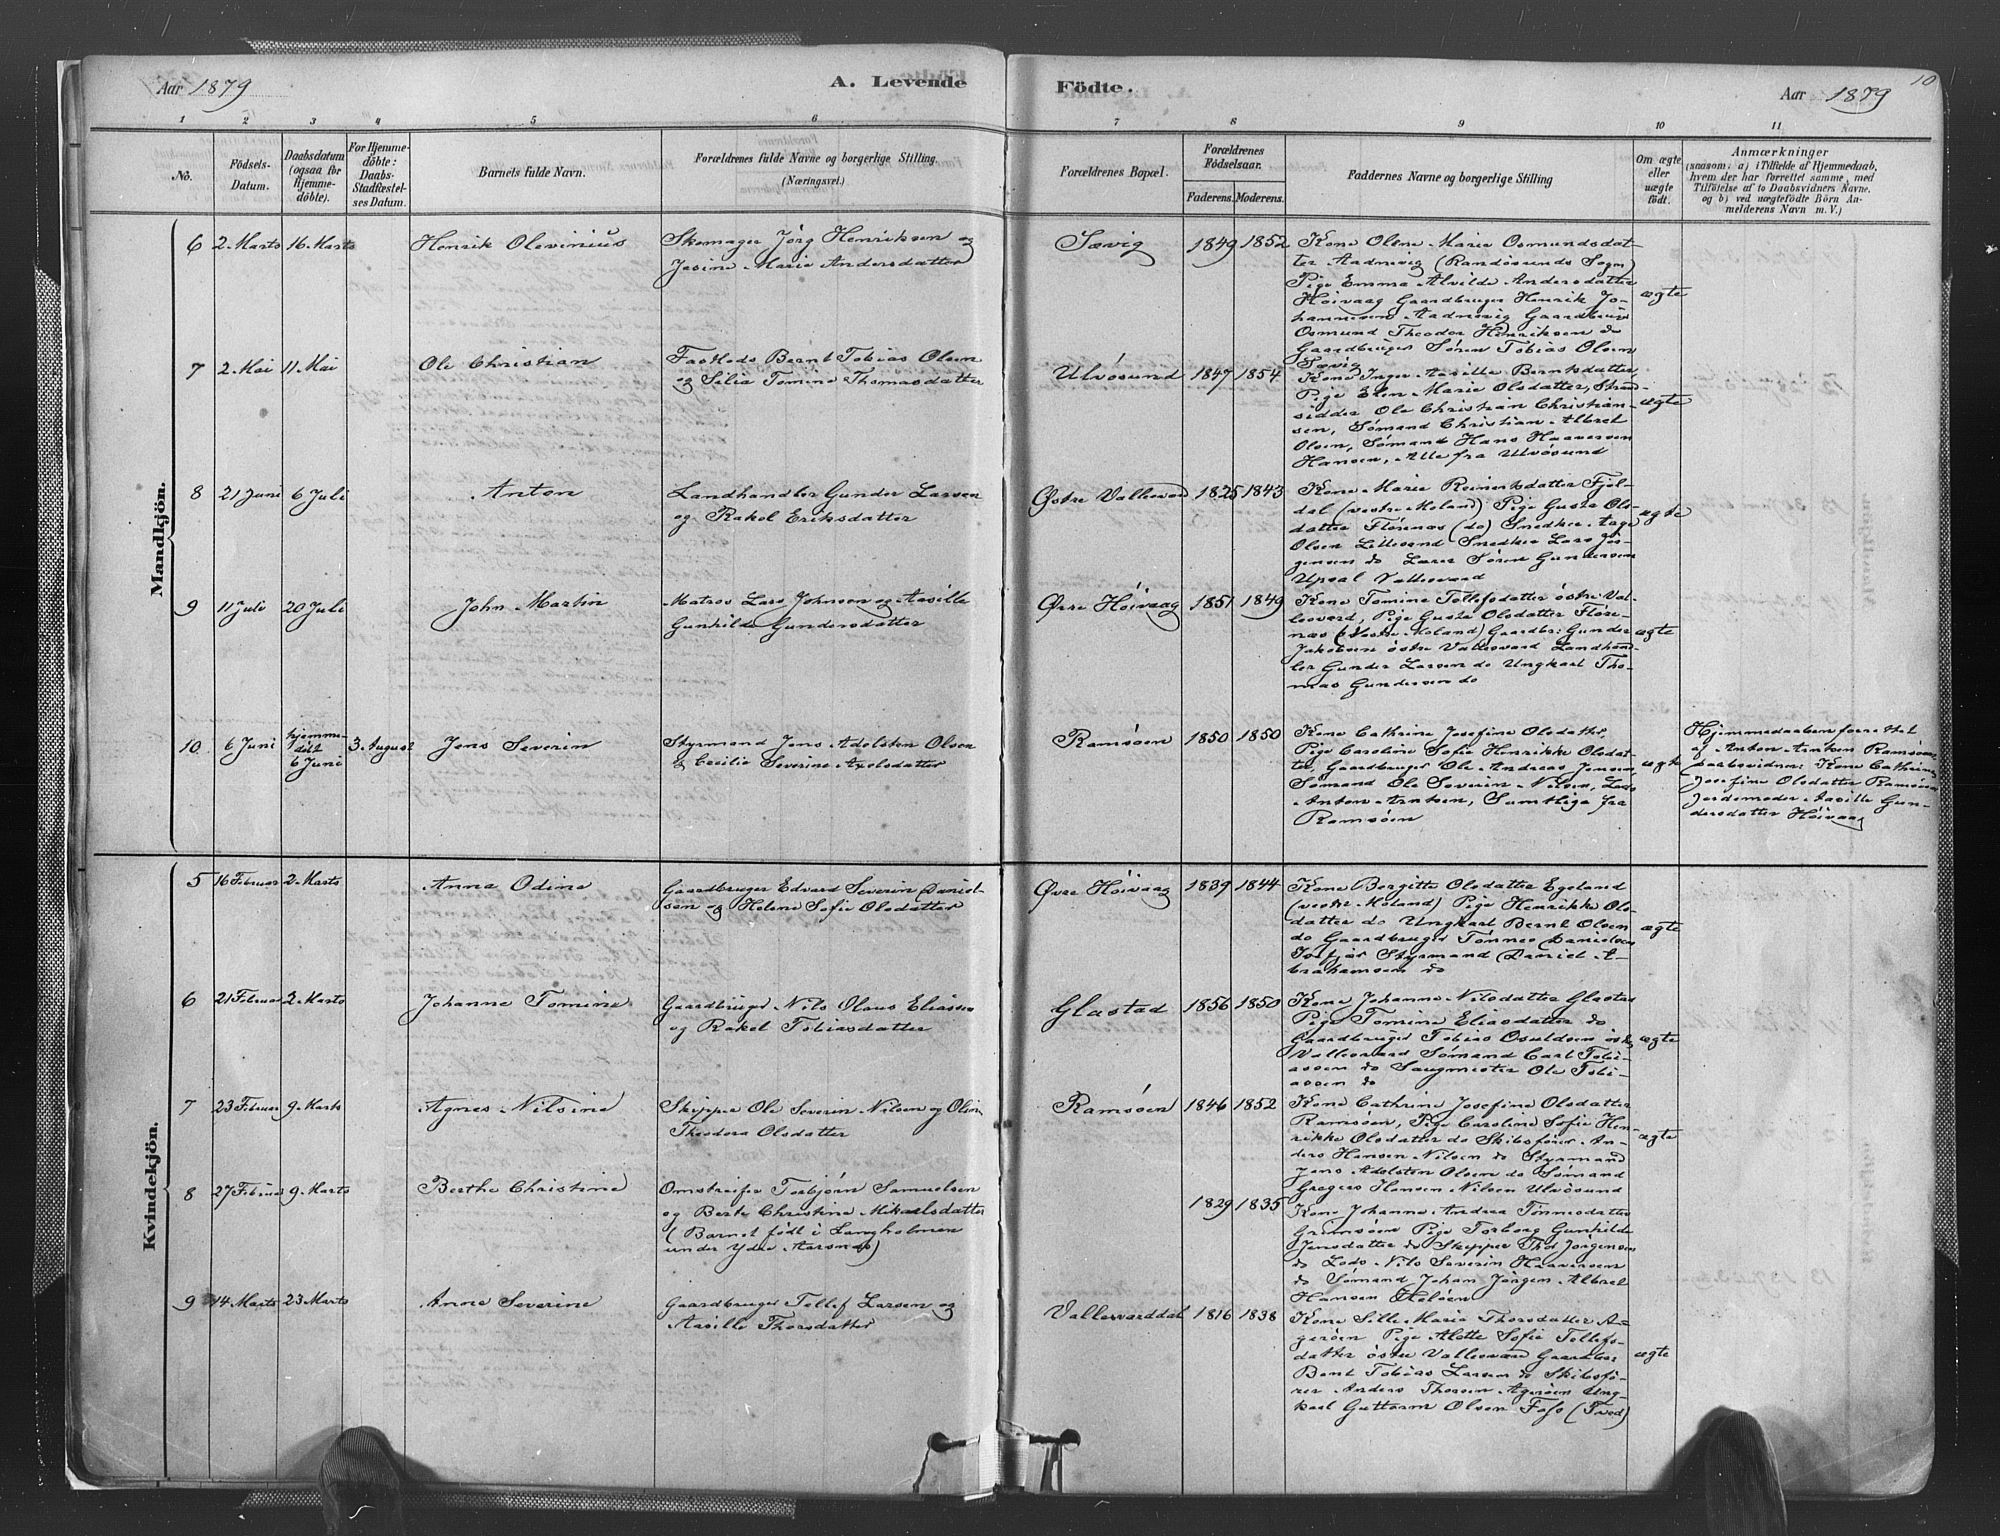 Aar 1879
A. Levende
Födte.
Aar 1879
10
1 2 3 4 5 6 7 8 9 10 11
No.
Födsels-
Datum.
Daabsdatum
(ogsaa for
Hjemme-
döbte).
For Hjemme-
döbte:
Daabs-
Stadfæstel-
ses Datum.
Barnets fulde Navn.
Forældrenes fulde Navne og borgerlige Stilling.
(Næringsvei.)
Forældrenes Bopæl.
Forældrenes
Födselsaar.
Faderens. Moderens.
Faddernes Navne og borgerlige Stilling
Om ægte
eller
uægte
födt.
Anmærkninger
(saasom: a) i Tilfælde af Hjemmedaab,
hvem der har forrettet samme, med
Tilföielse af to Daabsvidners Navne.
og b) ved uægtefödte Börn An-
melderens Navn m. V.)
Mandkjön.
6 2 Marts 16 Marts
Henrik Olevinius
Skomager Jörg Henriksen og
Jesine Marie Andersdatter
Sævig 1849 1852
Kone Olene Marie Osmundsdat-
ter Aadnevig (Randösunds Sogn)
Pige Emma Alvilde Andersdatter
Höivaag Gaardbruger Henrik Jo-
hannesen Aadnevig Gaardbrug
Osmund Theodor Henriksen do
Gaardbruger Sören Tobias Olsen
Sævig
ægte
7 2 Mai 11 Mai
Ole Christian
Fastlods Bernt Tobias Olsen
og Silia Tomine Thomasdatter
Ulvösund 1847 1854
Kone Inger Aasille Berntsdatter,
Pige Elen Marie Olsdatter, Stran-
sidder Ole Christian Christian-
sen, Sömand Christian Albret
Olsen, Sömand Hans Haaversen
Hansen, Alle fra Ulvösund
ægte
8 21 Juni 6 Juli
Anton
Landhandler Gunder Larsen
og Rakel Eriksdatter
Østre Vallesvard 1825 1843
Kone Marie Reinertsdatter Fjel-
dal (vestre Moland) Pige Gusta Ols-
datter Flörenæs (do) Snedker Aage
Olsen Lillesand Snedker Lars Jör-
gensen do Lærer Sören Gundersen
Upsal Vallesvard
ægte
9 11 Juli 20 Juli
John Martin
Matros Lars Johnsen og Aasille
Gunhilde Gundersdatter
Øvre Höivaag 1851 1849
Kone Tomine Tellefsdatter östre Val-
lesvard, Pige Gusta Olsdatter Flöre-
næs (Vestre Moland) Gaardbr: Gunder
Jakobsen östre Vallesvard Landhand-
ler Gunder Larsen do Ungkarl Tho-
mas Gundersen do
ægte
10 6 Juni
hjemme-
döbt
6 Juni
3 August
Jens Severin
Styrmand Jens Adolsten Olsen
& Cecilie Severine Axelsdatter
Ramsöen 1850 1850
Kone Cathrine Josefine Olsdatter,
Pige Caroline Sofie Henrikke Olsdat-
ter, Gaardbruger Ole Andreas Jensen,
Sömand Ole Severin Nilsen, Lods
Anton Arntsen, Samtlige fra
Ramsöen
ægte
Hjemmedaaben forrettet
af Anton Arntsen Ramsöen
Daabsvidner: Kone Cathrine
Josefine Olsdatter Ramsöen
Jordemoder Aasille Gun-
dersdatter Höivaag
Kvindekjön.
5 16 Februar 2 Marts
Anna Odine
Gaardbruger Edvard Severin Daniel-
sen og Helene Sofie Olsdatter
Øvre Höivaag 1839 1844
Kone Bergitte Olsdatter Egeland
(vestre Moland) Pige Henrikke Ols-
datter do Ungkarl Bernt Olsen
do Gaardbruger Tönnes Danielsen
Styrmand Daniel A-
brahamsen do
ægte
6 21 Februar 2 Marts
Johanne Tomine
Gaardbruger Nils Olaus Eliassen
og Rakel Tobiasdatter
Glastad 1856 1850
Kone Johanne Nilsdatter Glastad
Pige Tomine Eliasdatter do
Gaardbruger Tobias Osuldsen östre
Vallesvard Sömand Carl Tobi-
assen do Saugmester Ole Tobi-
assen do
ægte
7 23 Februar 9 Marts
Agnes Nilsine
Skipper Ole Severin Nilsen og Oline
Theodora Olsdatter
Ramsöen 1846 1852
Kone Cathrine Josefine Olsdatter
Ramsöen, Pige Caroline Sofie Hen-
rikke Olsdatter do Skibsförer An-
ders Hansen Nilsen do Styrmand
Jens Adolsten Olsen do Sömand
Gregers Hansen Nilsen Ulvösund
ægte
8 27 Februar 9 Marts
Berthe Christine
Omstreifer Torbjörn Samuelsen
og Berte Christine Mikaelsdatter
(Barnet født i Langholmen
under Ydre Aarsnæs)
1829 1835
Kone Johanne Andrea Tönnesdatter
Grimsöen Pige Torborg Gunhilde
Jensdatter do Skipper Thd Jörgensen
do Lods Nils Severin Haaversen
do Sömand Johan Jörgen Albret
Hansen
9 14 Marts 23 Marts
Anne Severine
Gaardbruger Tellef Larsen og
Aasille Thorsdatter
Vallesvarddal 1816 1838
Kone Sille Maria Thorsdatter A-
geröen Pige Alette Sofie Tellefs-
datter östre Vallesvard Gaardbr
Bent Tobias Larsen do Skibsfö-
rer Anders Thorsen Ageröen Ung-
karl Guttorm Olsen Foss (Tved)
ægte